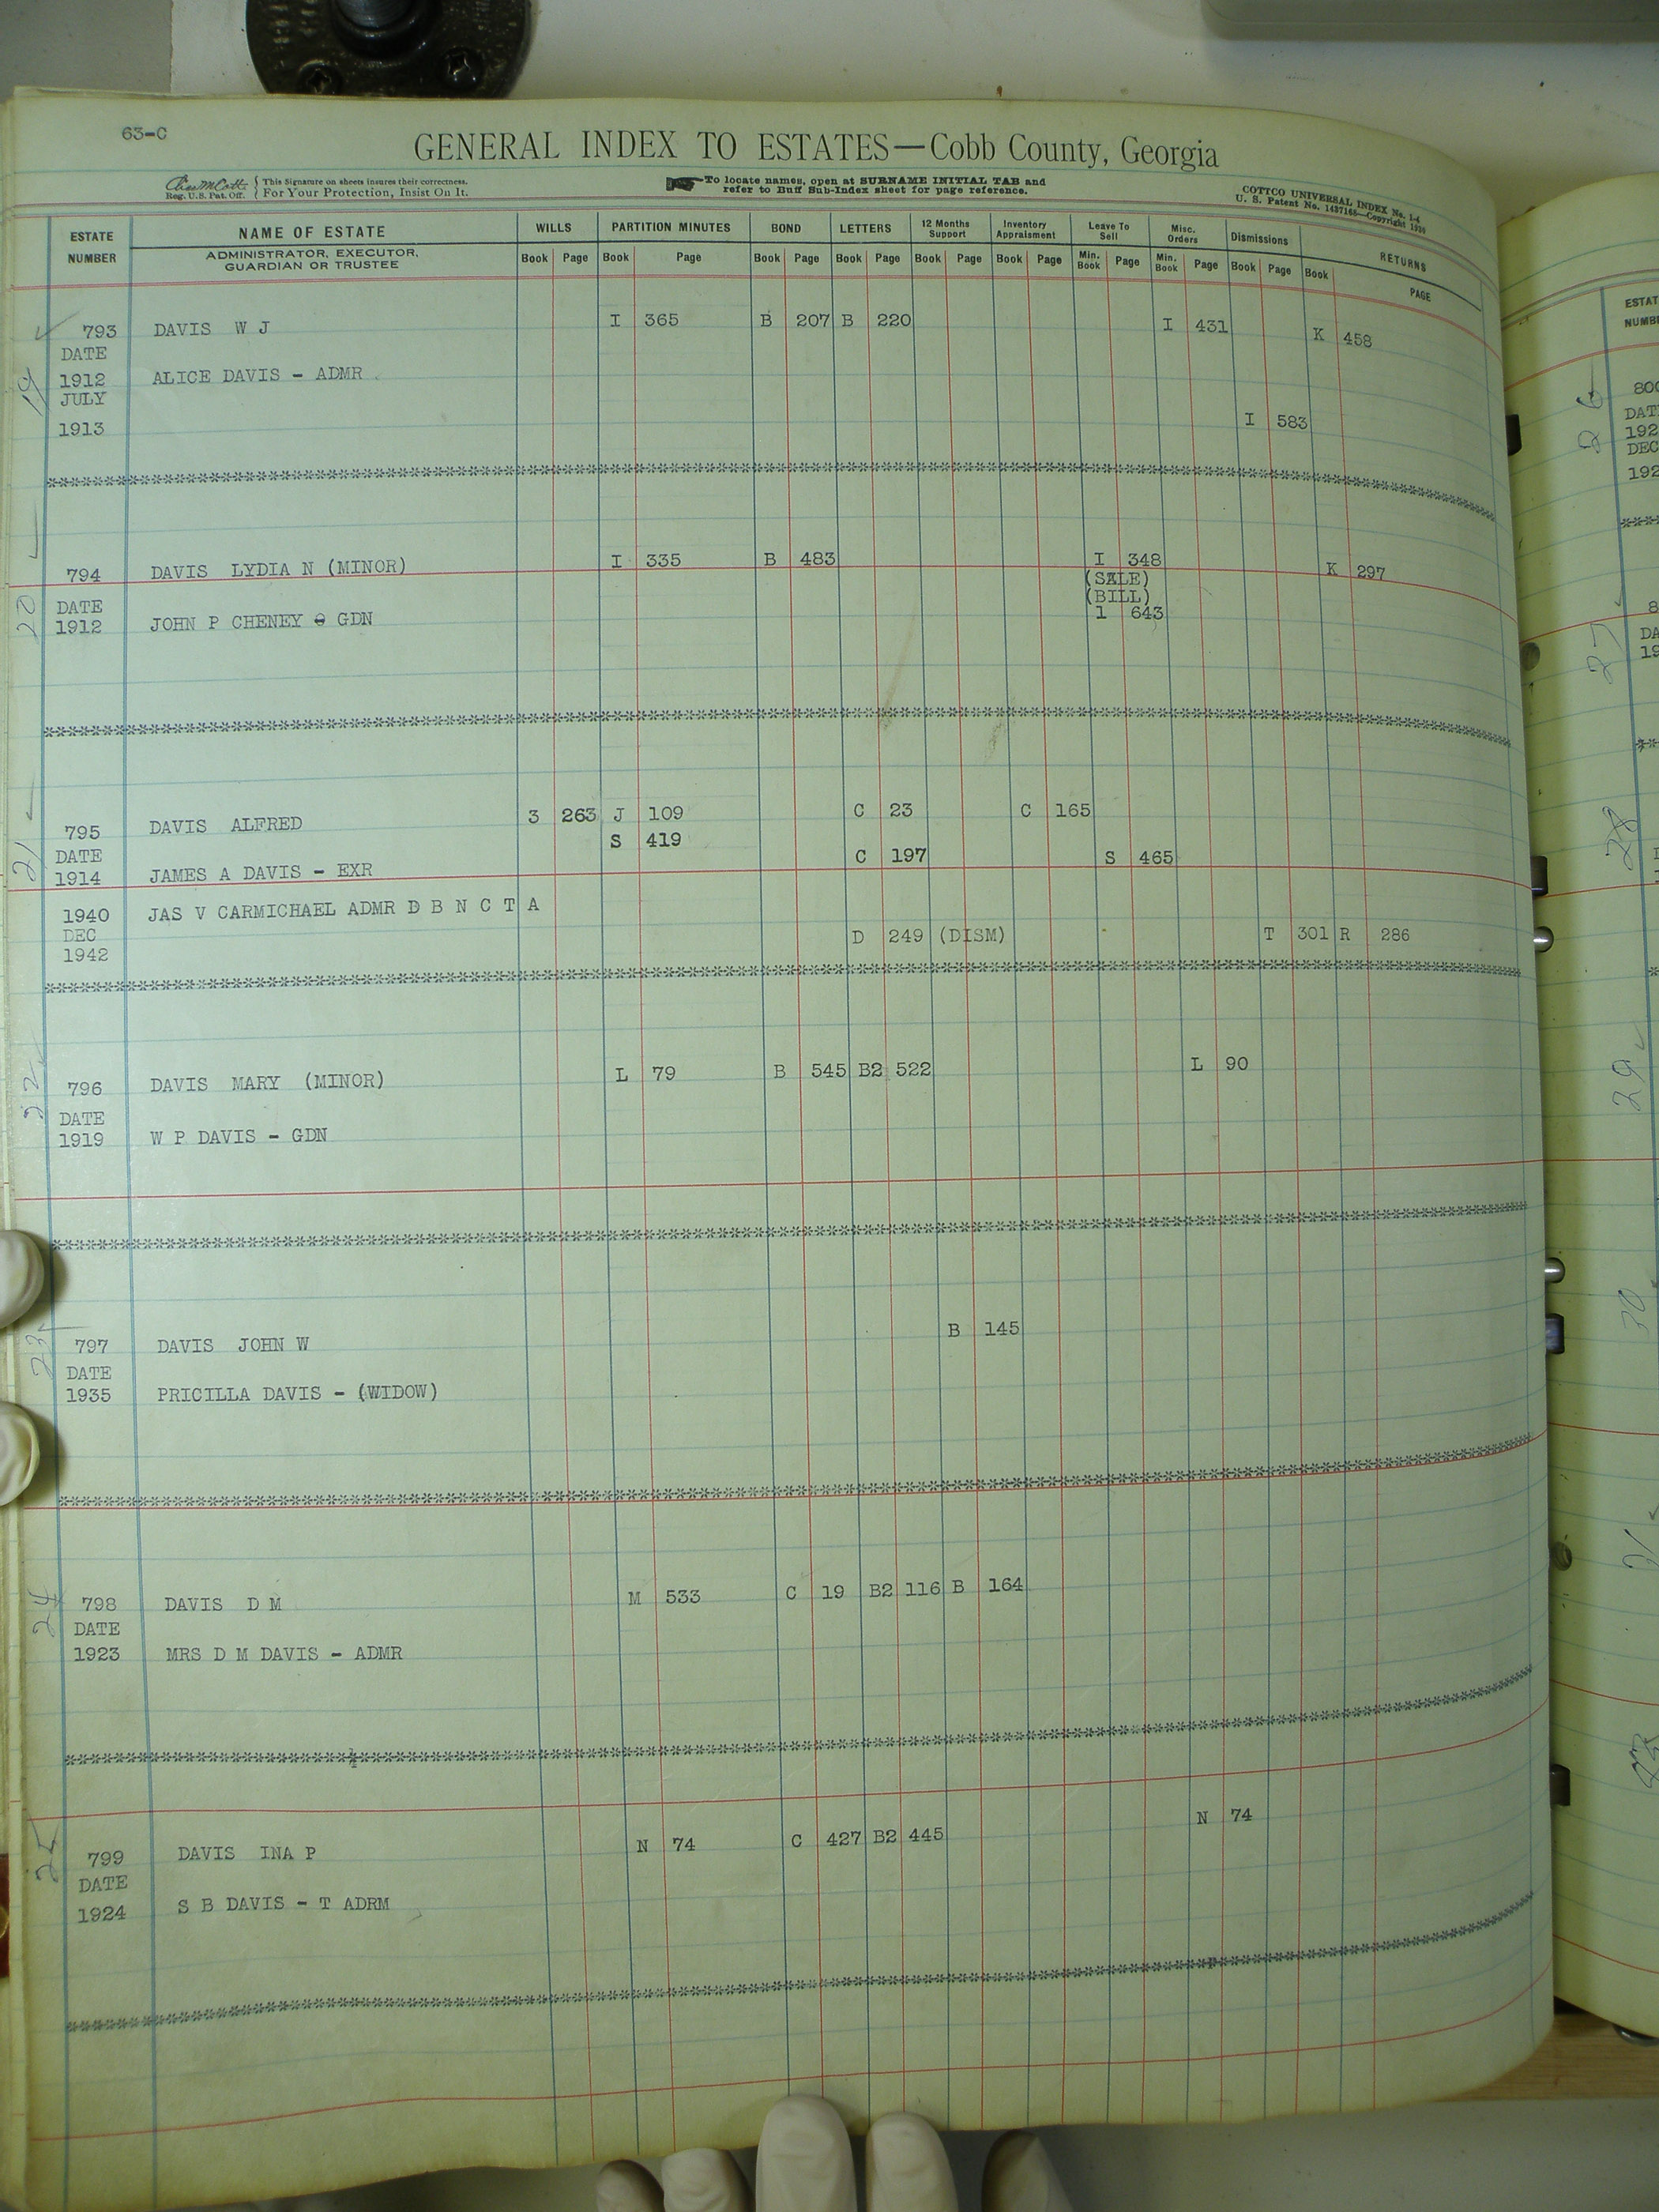 63-C
GENERAL INDEX TO ESTATES—Cobb County, Georgia
Reg. U.S. Pat. Off.
This Signature on sheets insures their correctness.
For Your Protection, Insist On It.
To locate names, open at SURNAME INITIAL TAB and
refer to Buff Sub-Index sheet for page reference.
COTTCO UNIVERSAL INDEX No. 1-4
U. S. Patent No. 1437168—Copyright 1930
ESTATE NUMBER
NAME OF ESTATE
ADMINISTRATOR, EXECUTOR,
GUARDIAN OR TRUSTEE
WILLS PARTITION MINUTES BOND LETTERS 12 Months Support Inventory Appraisment Leave To Sell Misc. Orders Dismissions RETURNS
Book Page Book Page Book Page Book Page Book Page Book Page Min. Book Page Min. Book Page Book Page Book PAGE
19 793 DAVIS W J I 365 B 207 B 220 I 431 K 458
DATE
1912 ALICE DAVIS - ADMR
JULY
1913 I 583
20 794 DAVIS LYDIA N (MINOR) I 335 B 483 I 348 K 297
(SALE)
DATE (BILL)
1912 JOHN P CHENEY GDN 1 643
21 795 DAVIS ALFRED 3 263 J 109 C 23 C 165
S 419
DATE C 197 S 465
1914 JAMES A DAVIS - EXR
1940 JAS V CARMICHAEL ADMR D B N C T A
DEC D 249 (DISM) T 301 R 286
1942
22 796 DAVIS MARY (MINOR) L 79 B 545 B2 522 L 90
DATE
1919 W P DAVIS - GDN
23 797 DAVIS JOHN W B 145
DATE
1935 PRICILLA DAVIS - (WIDOW)
24 798 DAVIS D M M 533 C 19 B2 116 B 164
DATE
1923 MRS D M DAVIS - ADMR
25 799 DAVIS INA P N 74 C 427 B2 445 N 74
DATE
1924 S B DAVIS - T ADRM
ESTAT
NUMB
26
800
DAT
192
DEC
192
27
8
DA
19
28
29
30